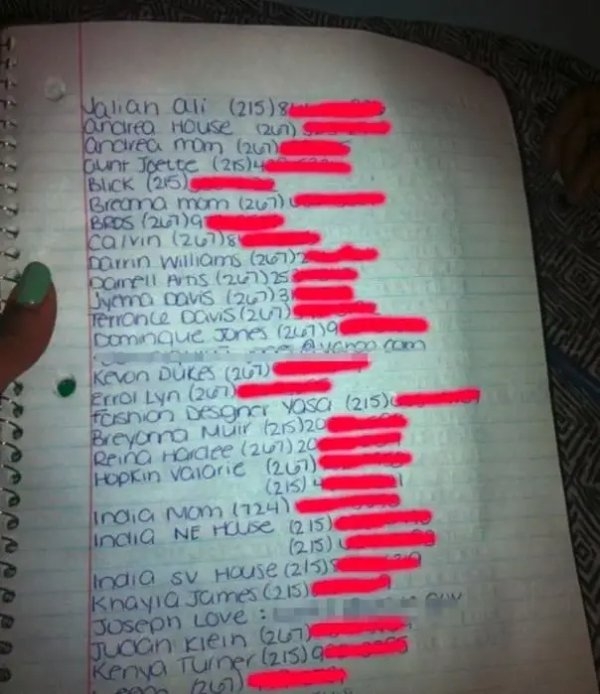 Jalian Ali (215) 8
Andrea House (267)
Andrea mom (267)
Aunt Joette (215) 4
Blick (215)
Breonna mom (267)
BROS (267) 9
Calvin (267) 8
Darrin Williams (267) 2
Darnell Artis (267) 25
Jyenna Davis (267) 3
Terrance Davis (267)
Dominque Jones (267) 9
@yahoo.com
Kevon Dukes (267)
Errol Lyn (267)
Fashion Designer Yasa (215)
Breyonna Muir (215) 20
Reina Hardee (267) 20
Hopkin Valorie (267)
(215) 4
India Mom (724)
India NE House (215)
(215)
India SV House (215)
Khayla James (215)
Joseph Love :
Judan Klein (267)
Kenya Turner (215) 9
(267)